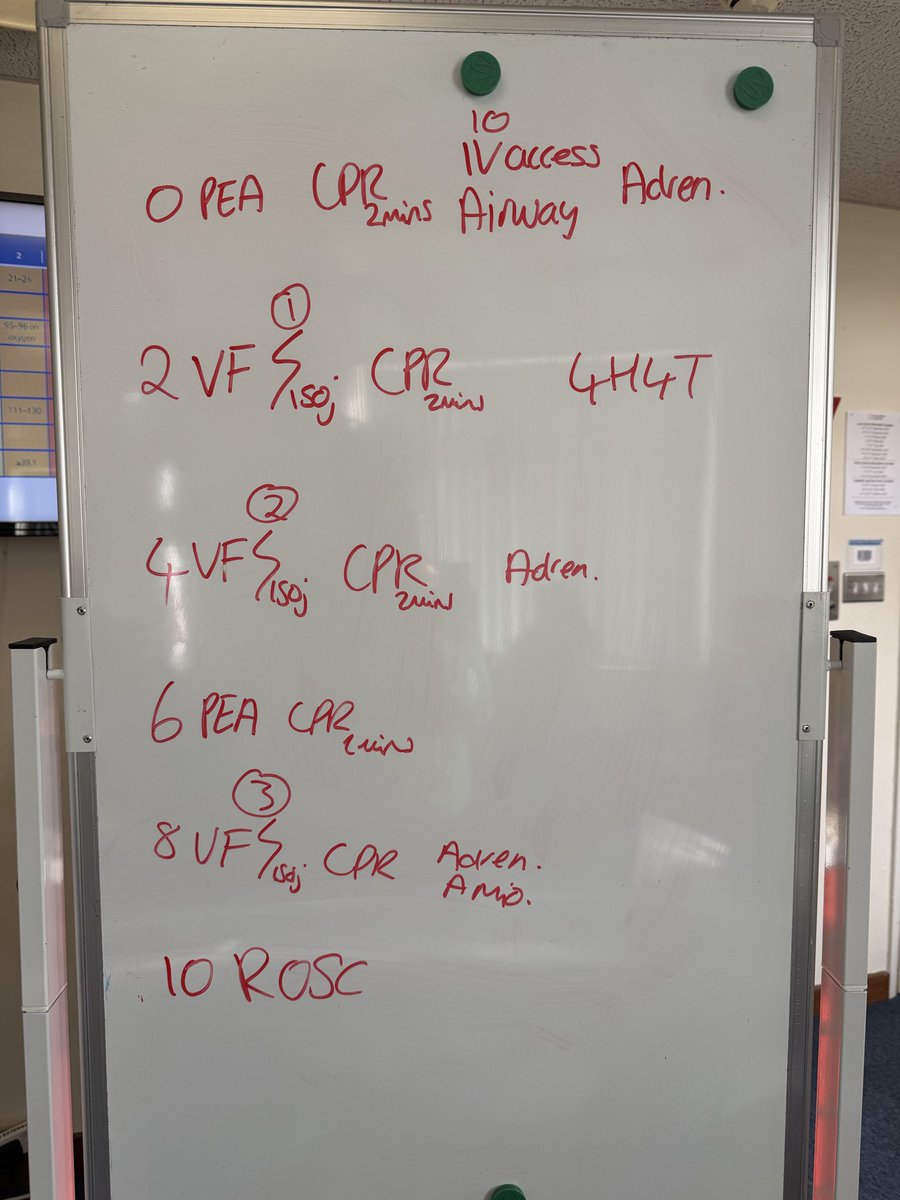 10
IV access
0 PEA CPR 2mins Airway Adren.
1
2 VF 150j CPR 2min 4H4T
2
4 VF 150j CPR 2min Adren.
6 PEA CPR 2min
3
8 VF 150j CPR Adren.
Amio.
10 ROSC
2
21-24
95-96 on
oxygen
111-130
≥39.1